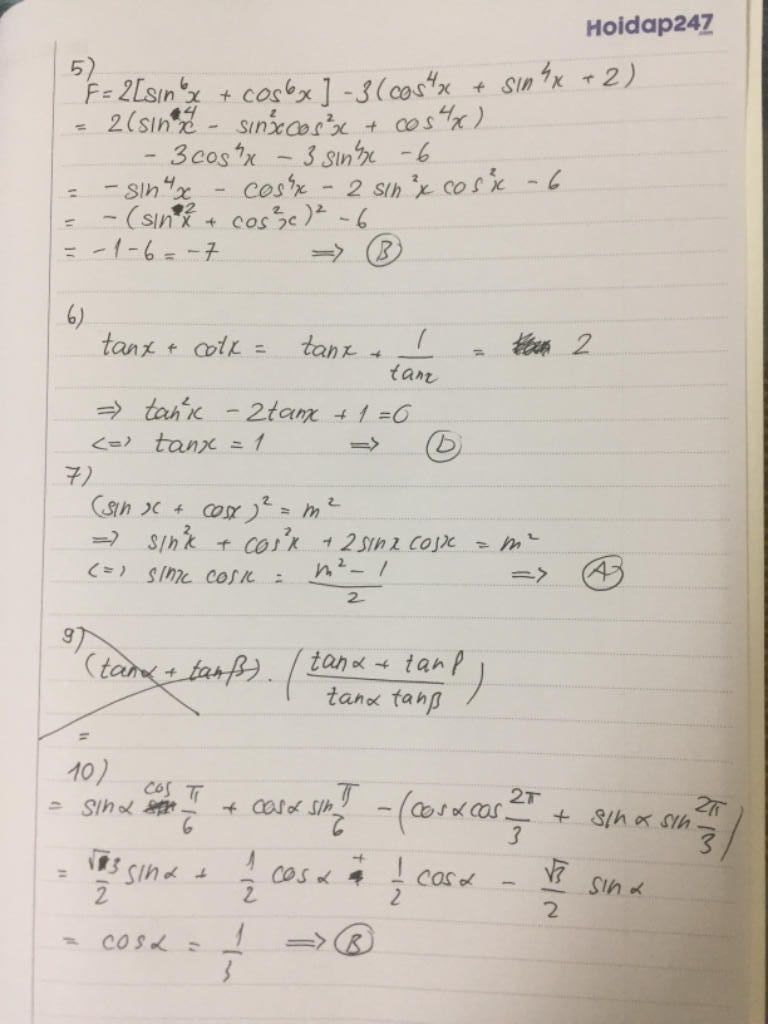 Hoidap247
5)
F = 2[sin⁶x + cos⁶x] - 3(cos⁴x + sin⁴x + 2)
= 2(sin⁴x - sin²xcos²x + cos⁴x)
- 3cos⁴x - 3sin⁴x - 6
= -sin⁴x - cos⁴x - 2 sin²x cos²x - 6
= -(sin²x + cos²x)² - 6
= -1 - 6 = -7 => B
6)
tanx + cotx = tanx + 1/tanx = 2
=> tan²x - 2tanx + 1 = 0
<=> tanx = 1 => D
7)
(sin x + cosx)² = m²
=> sin²x + cos²x + 2sinx cosx = m²
<=> sinx cosx = (m² - 1)/2 => A
9)
(tanα + tanβ) . ((tanα + tanβ)/(tanα tanβ))
=
10)
= sinα cos π/6 + cosα sin π/6 - (cosα cos 2π/3 + sinα sin 2π/3)
= √3/2 sinα + 1/2 cosα + 1/2 cosα - √3/2 sinα
= cosα = 1/3 => B